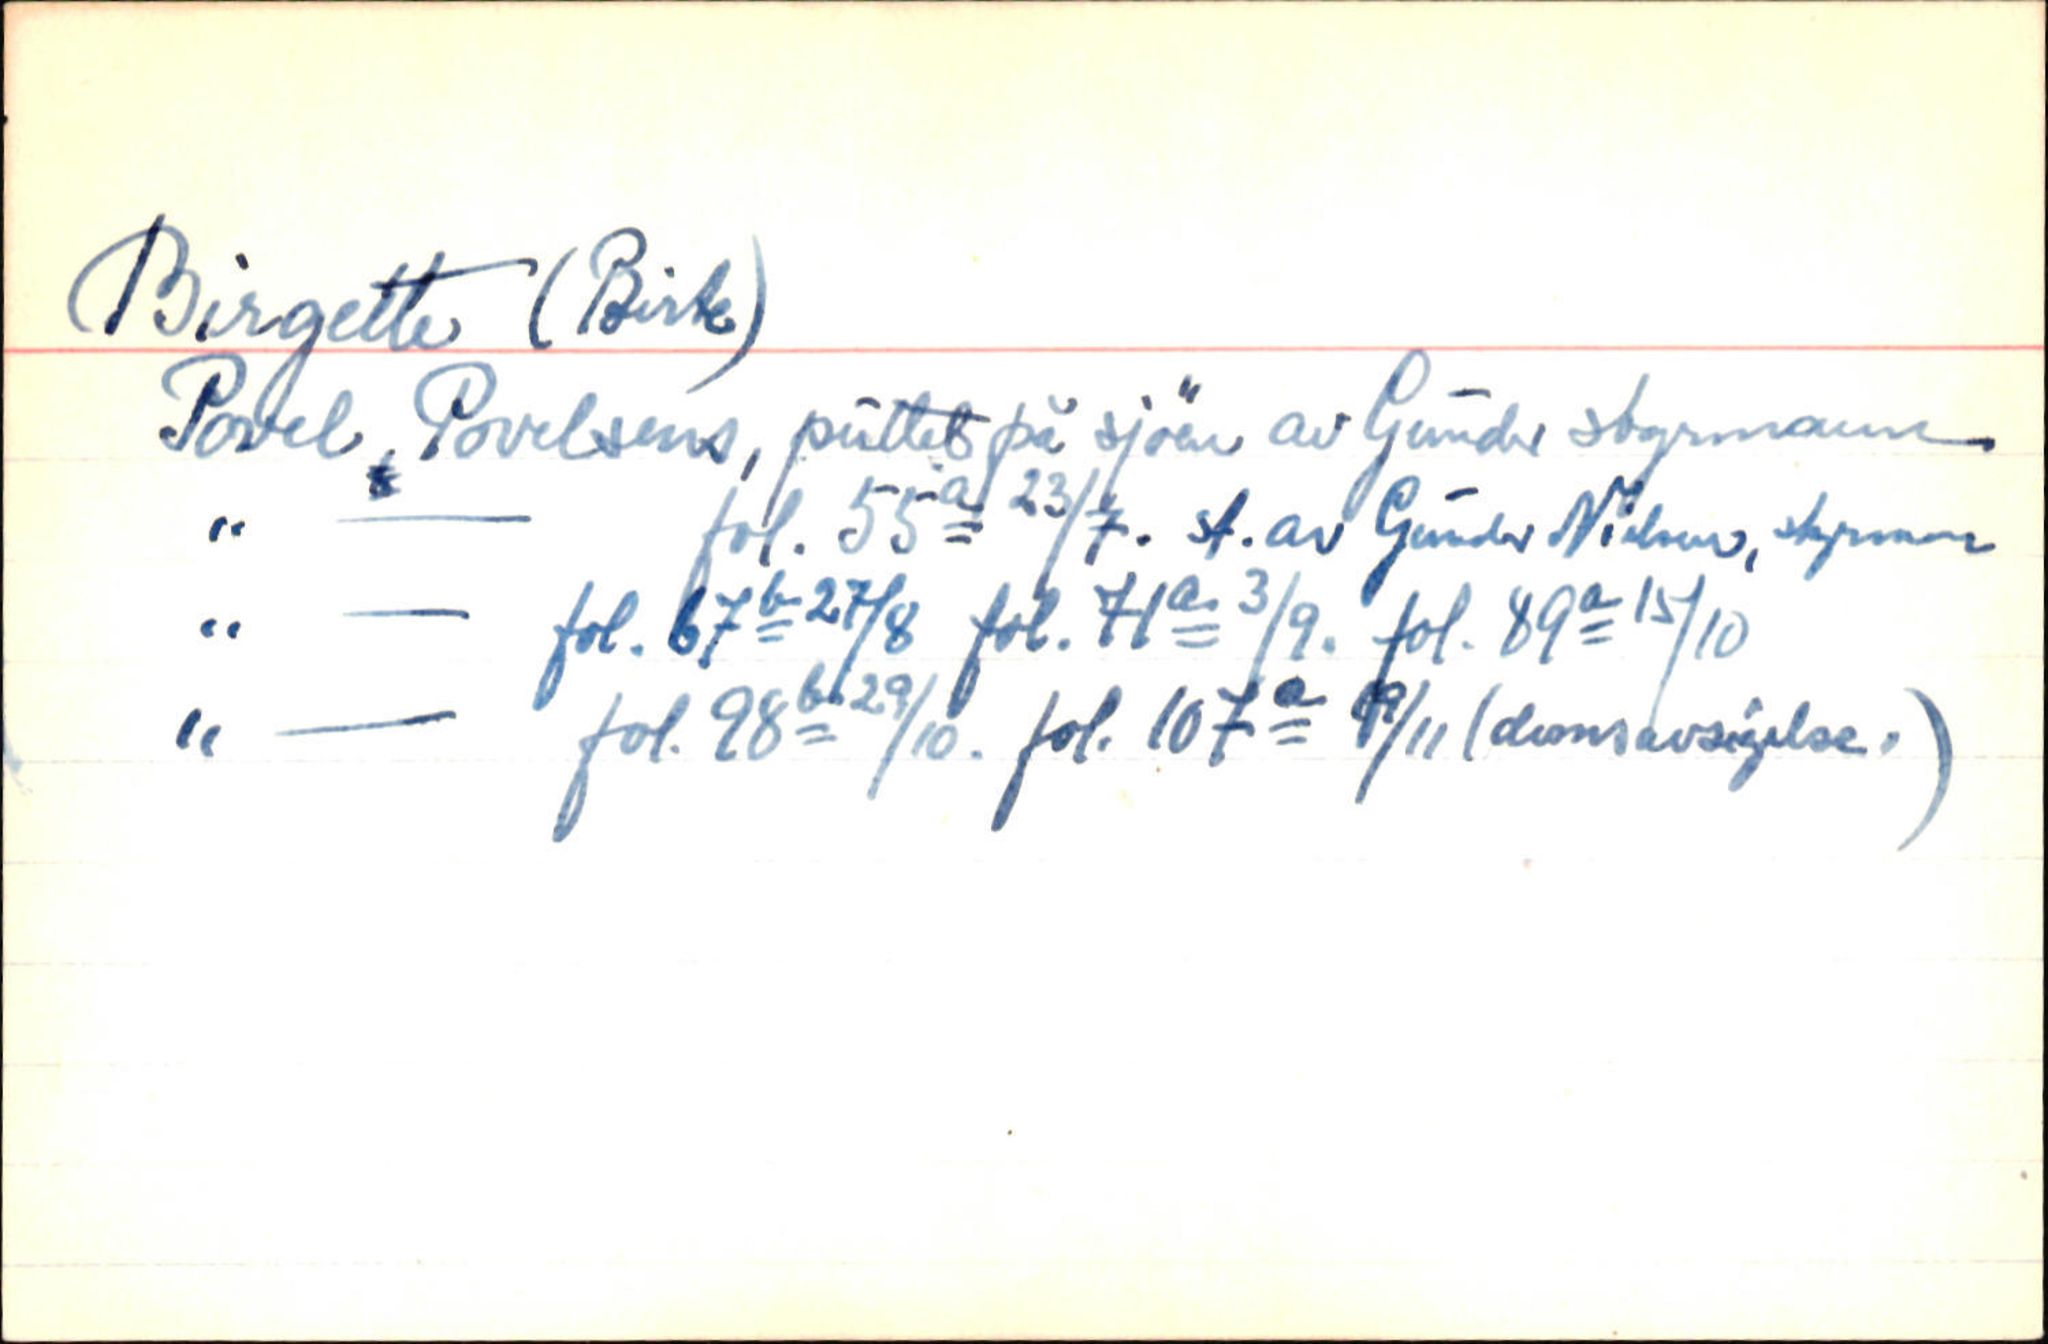 Birgette (Birte)
Povel Povelsens, puttet på sjöen av Gunder styrmann
" — fol. 55a 23/7. st. av Gunder Nielsen, styrmann
" — fol. 67b 27/8 fol. 71a 3/9. fol. 89a 15/10
" — fol. 98b 29/10. fol. 107a 19/11 (domsavsigelse.)